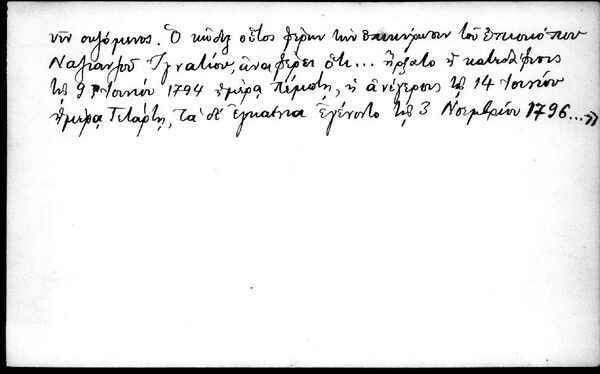 νῦν σωζόμενος. Ὁ κῶδηξ οὗτος φέρων τὴν ἐπικύρωσιν τοῦ ἐπισκόπου
Ναζιανζοῦ Ἰγνατίου, ἀναφέρει ὅτι... ἤρξατο ἡ κατεδάφισις
τῇ 9ῃ Ἰουνίου 1794 ἡμέρᾳ Πέμπτῃ, ἡ ἀνέγερσις τῇ 14 Ἰουνίου
ἡμέρᾳ Τετάρτῃ, τὰ δὲ ἐγκαίνια ἐγένοντο τῇ 3 Νοεμβρίου 1796...»